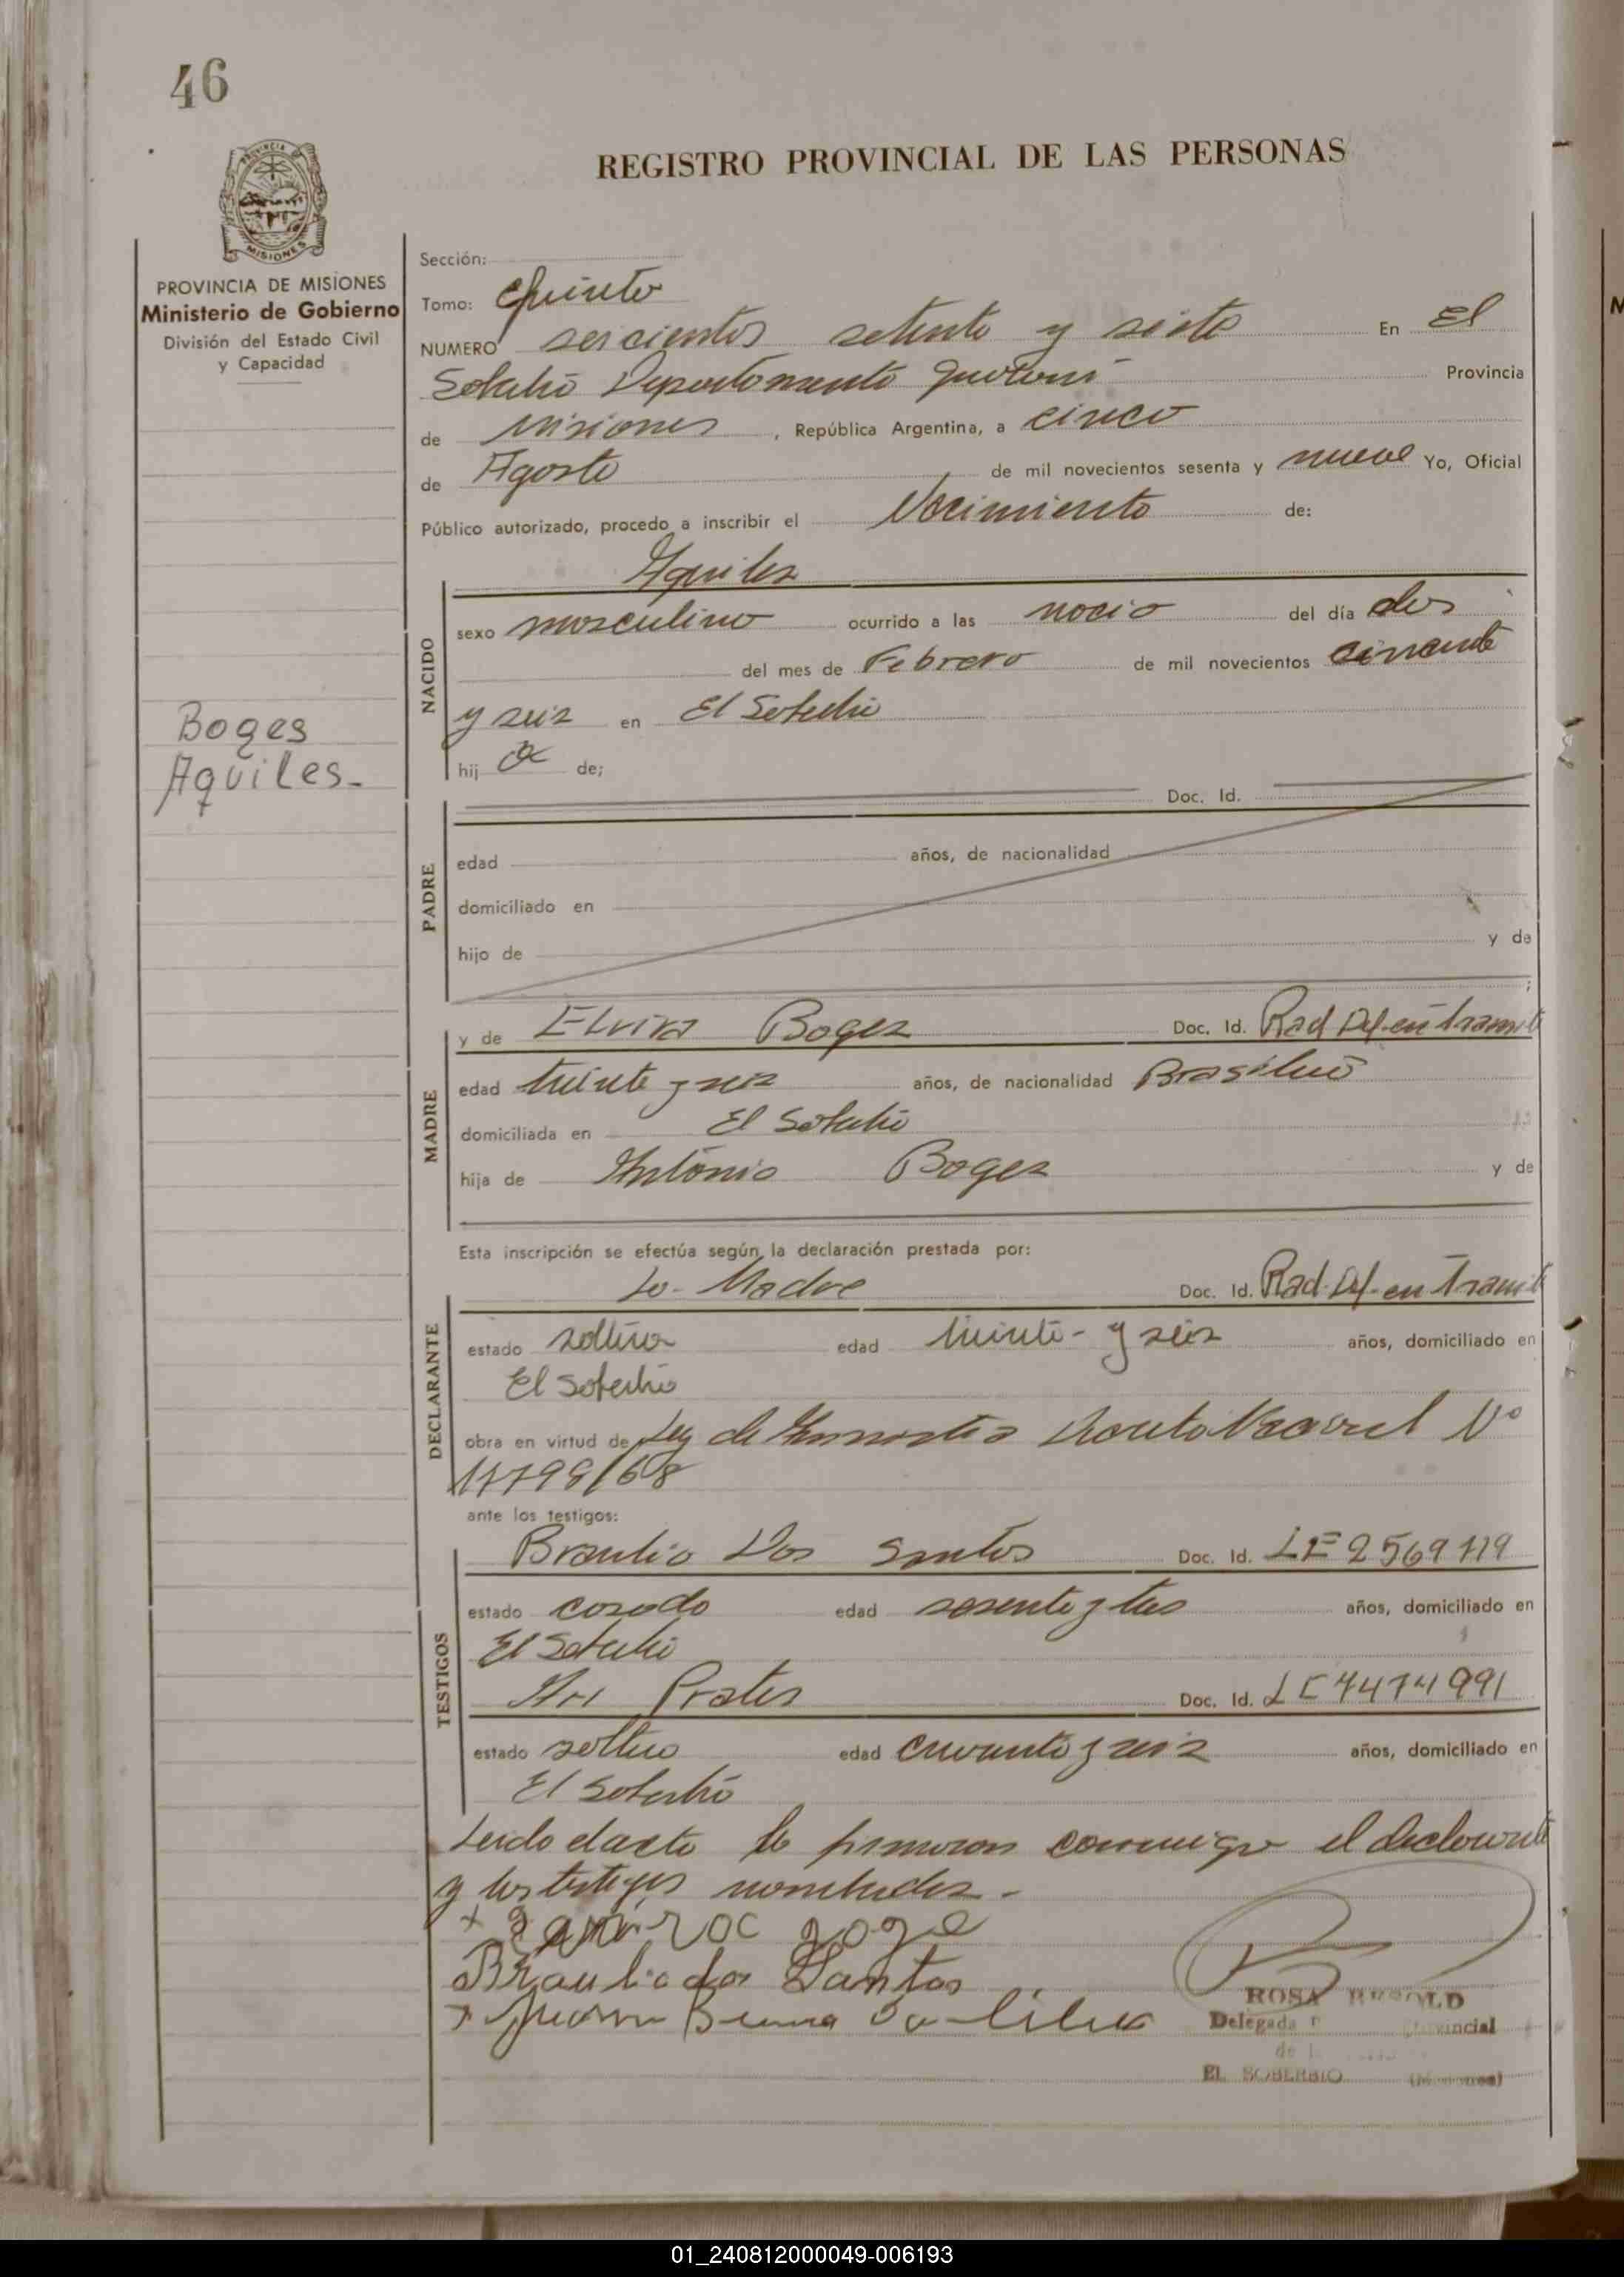 46
REGISTRO PROVINCIAL DE LAS PERSONAS
PROVINCIA DE MISIONES
PROVINCIA DE MISIONES
Ministerio de Gobierno
División del Estado Civil
y Capacidad
Boges
Aquiles-
Sección:
Tomo: Quinto
NUMERO seiscientos setenta y siete En El
Soberbio Departamento Guaraní Provincia
de Misiones, República Argentina, a cinco
de Agosto de mil novecientos sesenta y nueve Yo, Oficial
Público autorizado, procedo a inscribir el Nacimiento de:
NACIDO
Aquiles
sexo masculino ocurrido a las nació del día dos
del mes de Febrero de mil novecientos
y seis en El Soberbio
hij de;
PADRE
Doc. Id.
edad años, de nacionalidad
domiciliado en
hijo de y de
;
MADRE
y de Elvira Boges Doc. Id. Rad Def. en tramite
edad treinta y seis años, de nacionalidad
domiciliada en El Soberbio
hija de Antonio Boges y de
Esta inscripción se efectúa según la declaración prestada por:
DECLARANTE
La Madre Doc. Id. Rad. Def. en tramite
estado edad treinta y seis años, domiciliado en
El Soberbio
obra en virtud de Ley de Nº
/68
ante los testigos:
TESTIGOS
Braulio Dos Santos Doc. Id. LE 2569719
estado casado edad sesenta y tres años, domiciliado en
El Soberbio
Ari Prates Doc. Id.
estado edad y seis años, domiciliado en
El Soberbio
Leido el acta la firmaron conmigo el declarante
y los testigos nombrados.-
Braulio dos Santos
ROSA
Delegada
EL SOBERBIO (Misiones)
01_240812000049-006193